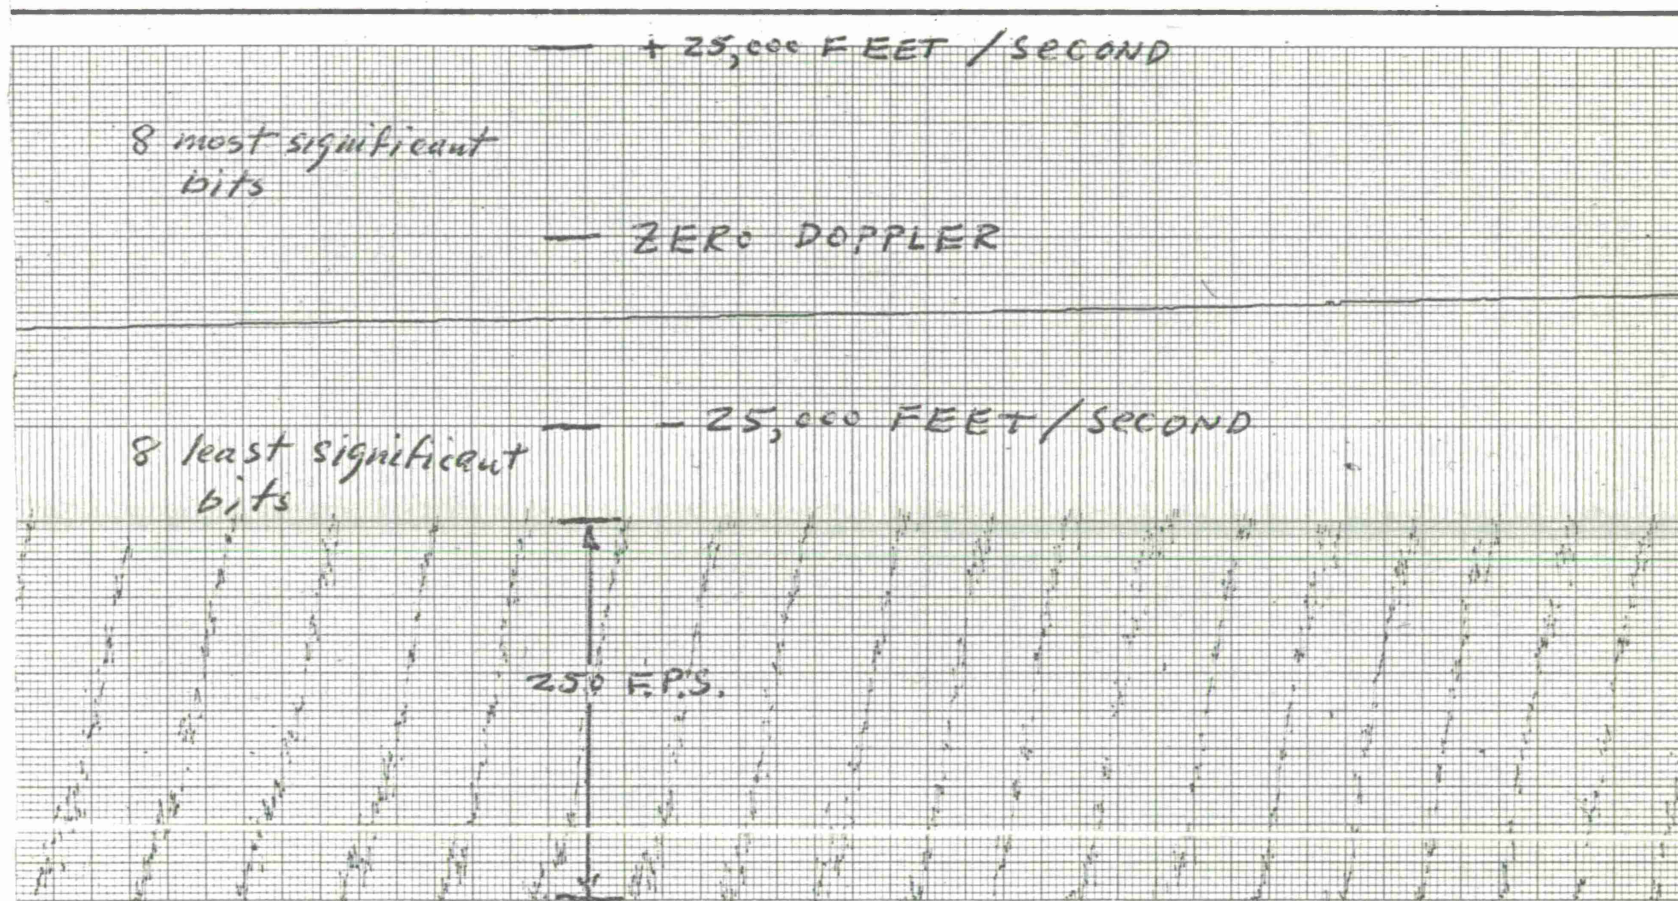 + 25,000 FEET / SECOND
8 most significant
bits
ZERO DOPPLER
- 25,000 FEET / SECOND
8 least significant
bits
250 F.P.S.